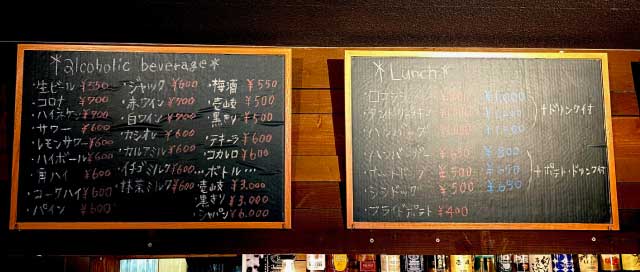 *alcoholic beverage*
・生ビール ¥550
・コロナ ¥700
・ハイネケン ¥700
・サワー ¥600
・レモンサワー ¥600
・ハイボール ¥600
・角ハイ ¥600
・コークハイ ¥600
・パイン ¥600
・ジャック ¥600
・赤ワイン ¥700
・白ワイン ¥700
・カシオレ ¥600
・カルアミルク ¥600
・イチゴミルク ¥600
・抹茶ミルク ¥600
・梅酒 ¥550
・壱岐 ¥500
・黒ギリ ¥500
・テキーラ ¥600
・コカレロ ¥600
…ボトル…
・壱岐 ¥3,000
・黒ぎり ¥3,000
・シャパン ¥6,000
*Lunch*
・ロコモコ ¥1,000
+ドリンク付
・ハンバーガー ¥650 ¥800
・ホットドッグ ¥500 ¥650
¥500 ¥650
+ポテト・ドリンク付
・フライドポテト ¥400